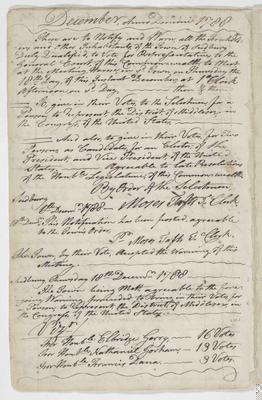 December Anno Domini 1788
These are to Notify and Warn all the Freeholders
and other Inhabitants of the Town of Sudbury
Duly Qualified to Vote for Representatives to the
General Court of this Commonwealth to Meet
at the Meeting House in sd Town on Thursday the
18th Day of this Instant December at 1 oClock
Afternoon on sd Day. then & there
To give in their Votes to the Selectmen for a
Person to represent the District of Middlesex in
the Congress of the United States.
And also to give in their Votes for two
Persons as Candidates for an Elector of the
President, and Vice President of the United
States, Agreeable to Late Resolutions
of the Honble Legislature of this Commonwealth
By Order of the Selectmen
Sudbury
Decemr 1788 Moses Taft T. Clerk
Notification has been posted agreeable
to the Towns Order.
Pr. Moses Taft T. Clerk.
The Town by their Vote, Accepted the warning of this
Meeting
Sudbury Thursday 18th Decemr. 1788
The Town being Mett agreeable to the fore-
going Warning proceeded to bring in their Votes for
Person to Represent the District of Middlesex in
the Congress of the United States.
Viz.
For Honble Elbridge Gerry — 16 Votes
For Honble Nathaniel Gorham — 13 Votes
For Honble Francis Dana — 3 Votes